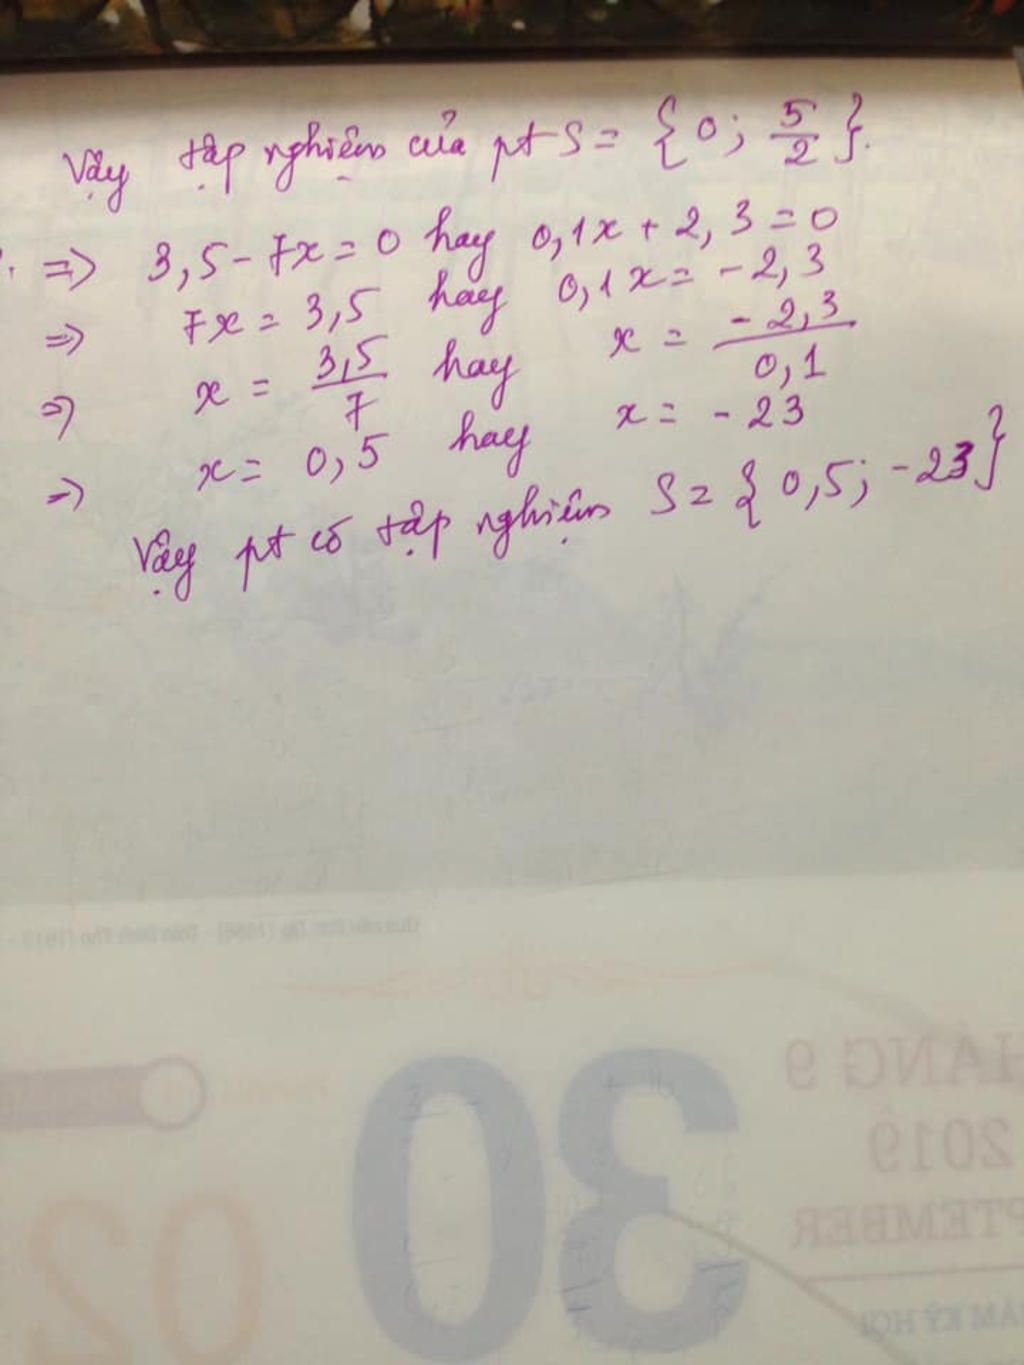 Vậy tập nghiệm của pt S = { 0; 5/2 }.
=> 3,5 - 7x = 0 hay 0,1x + 2,3 = 0
=> 7x = 3,5 hay 0,1x = -2,3
=> x = 3,5/7 hay x = -2,3/0,1
=> x = 0,5 hay x = -23
Vậy pt có tập nghiệm S = { 0,5; -23 }
HÁNG 9
30
2019
PTEMBER
02
ĂM KỶ HỢI